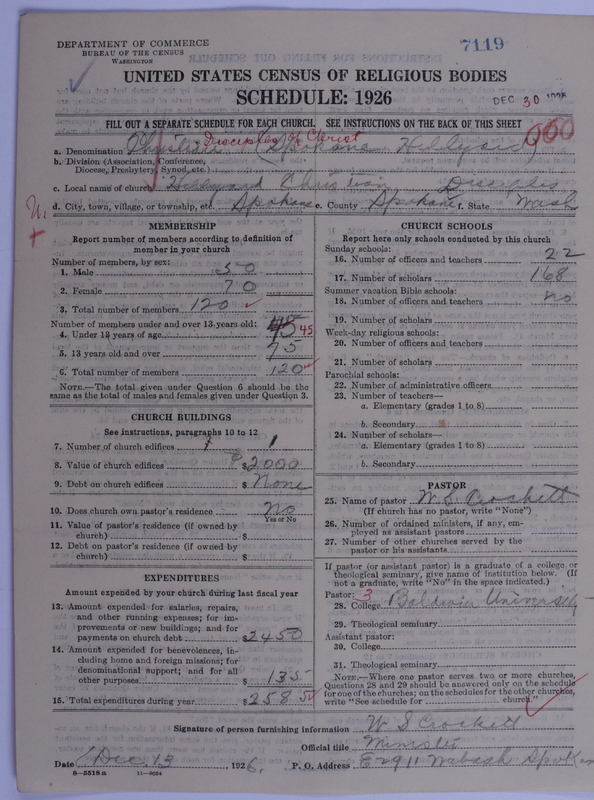 DEPARTMENT OF COMMERCE
BUREAU OF THE CENSUS
WASHINGTON
7119
UNITED STATES CENSUS OF RELIGIOUS BODIES
SCHEDULE: 1926
DEC 30 1926
FILL OUT A SEPARATE SCHEDULE FOR EACH CHURCH. SEE INSTRUCTIONS ON THE BACK OF THIS SHEET
Disciples of Christ
a. Denomination Spokane Hillyard
b. Division (Association, Conference, Diocese, Presbytery, Synod, etc.)
c. Local name of church Hillyard Christian Disciples
d. City, town, village, or township, etc. Spokane e. County Spokane f. State Wash
MEMBERSHIP
Report number of members according to definition of member in your church
Number of members, by sex:
1. Male 50
2. Female 70
3. Total number of members 120
Number of members under and over 13 years old:
4. Under 13 years of age 45 45
5. 13 years old and over 75
6. Total number of members 120
NOTE.—The total given under Question 6 should be the same as the total of males and females given under Question 3.
CHURCH BUILDINGS
See instructions, paragraphs 10 to 12
7. Number of church edifices 1
8. Value of church edifices $2000
9. Debt on church edifices $ None
10. Does church own pastor's residence No
Yes or No
11. Value of pastor's residence (if owned by church) $
12. Debt on pastor's residence (if owned by church) $
EXPENDITURES
Amount expended by your church during last fiscal year
13. Amount expended for salaries, repairs, and other running expenses; for improvements or new buildings; and for payments on church debt $2450
14. Amount expended for benevolences, including home and foreign missions; for denominational support; and for all other purposes $135
15. Total expenditures during year $2585
CHURCH SCHOOLS
Report here only schools conducted by this church
Sunday schools:
16. Number of officers and teachers 22
17. Number of scholars 168
Summer vacation Bible schools:
18. Number of officers and teachers no
19. Number of scholars
Week-day religious schools:
20. Number of officers and teachers
21. Number of scholars
Parochial schools:
22. Number of administrative officers
23. Number of teachers—
a. Elementary (grades 1 to 8)
b. Secondary
24. Number of scholars—
a. Elementary (grades 1 to 8)
b. Secondary
PASTOR
25. Name of pastor W. S. Crockett
(If church has no pastor, write "None")
26. Number of ordained ministers, if any, employed as assistant pastors
27. Number of other churches served by the pastor or his assistants
If pastor (or assistant pastor) is a graduate of a college or theological seminary, give name of institution below. (If not a graduate, write "No" in the space indicated.)
Pastor: 3
28. College Baldwin University
29. Theological seminary
Assistant pastor:
30. College
31. Theological seminary
NOTE.—Where one pastor serves two or more churches, Questions 28 and 29 should be answered only on the schedule for one of the churches; on the schedules for the other churches, write "See schedule for church."
Signature of person furnishing information W S Crockett
Official title Minister
Date Dec. 13, 1926. P. O. Address E 2911 Wabash Spokane
8-5518a 11-9064